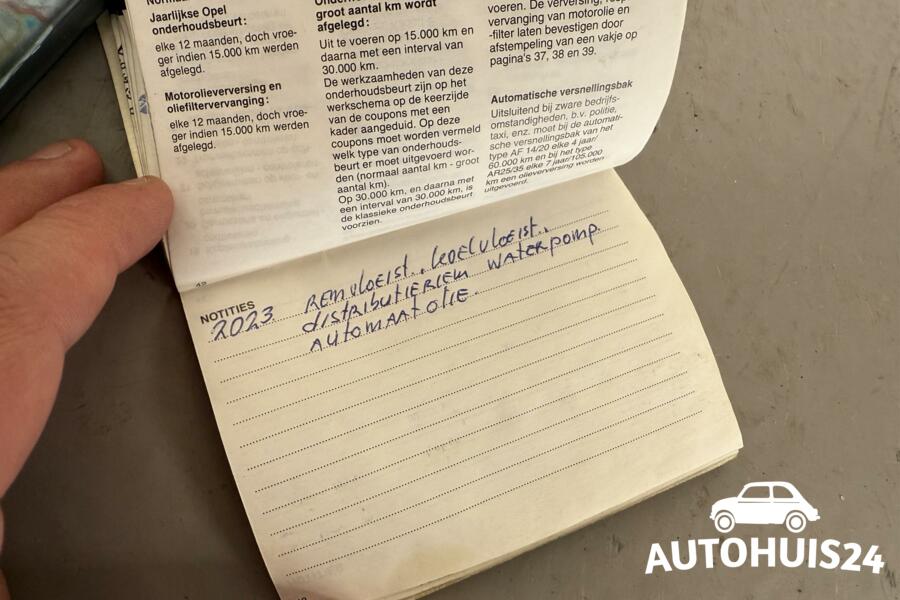 Jaarlijkse Opel
onderhoudsbeurt:
elke 12 maanden, doch vroe-
ger indien 15.000 km werden
afgelegd.
Motorolieverversing en
oliefiltervervanging:
elke 12 maanden, doch vroe-
ger indien 15.000 km werden
afgelegd.
groot aantal km wordt
afgelegd:
Uit te voeren op 15.000 km en
daarna met een interval van
30.000 km.
De werkzaamheden van deze
onderhoudsbeurt zijn op het
werkschema op de keerzijde
van de coupons met een
kader aangeduid. Op deze
coupons moet worden vermeld
welk type van onderhouds-
beurt er moet uitgevoerd wor-
den (normaal aantal km - groot
aantal km).
Op 30.000 km, en daarna met
een interval van 30.000 km, is
de klassieke onderhoudsbeurt
voorzien.
voeren. De verversing, resp.
vervanging van motorolie en
-filter laten bevestigen door
afstempeling van een vakje op
pagina's 37, 38 en 39.
Automatische versnellingsbak
Uitsluitend bij zware bedrijfs-
omstandigheden, b.v. politie,
taxi, enz. moet bij de automati-
sche versnellingsbak van het
type AF 14/20 elke 4 jaar/
60.000 km en bij het type
AR25/35 elke 7 jaar/105.000
km een olieverversing worden
uitgevoerd.
42
NOTITIES
2023 REMVLOEIST., KOELVLOEIST.,
DISTRIBUTIERIEM WATERPOMP.
AUTOMAAT OLIE.
AUTOHUIS24